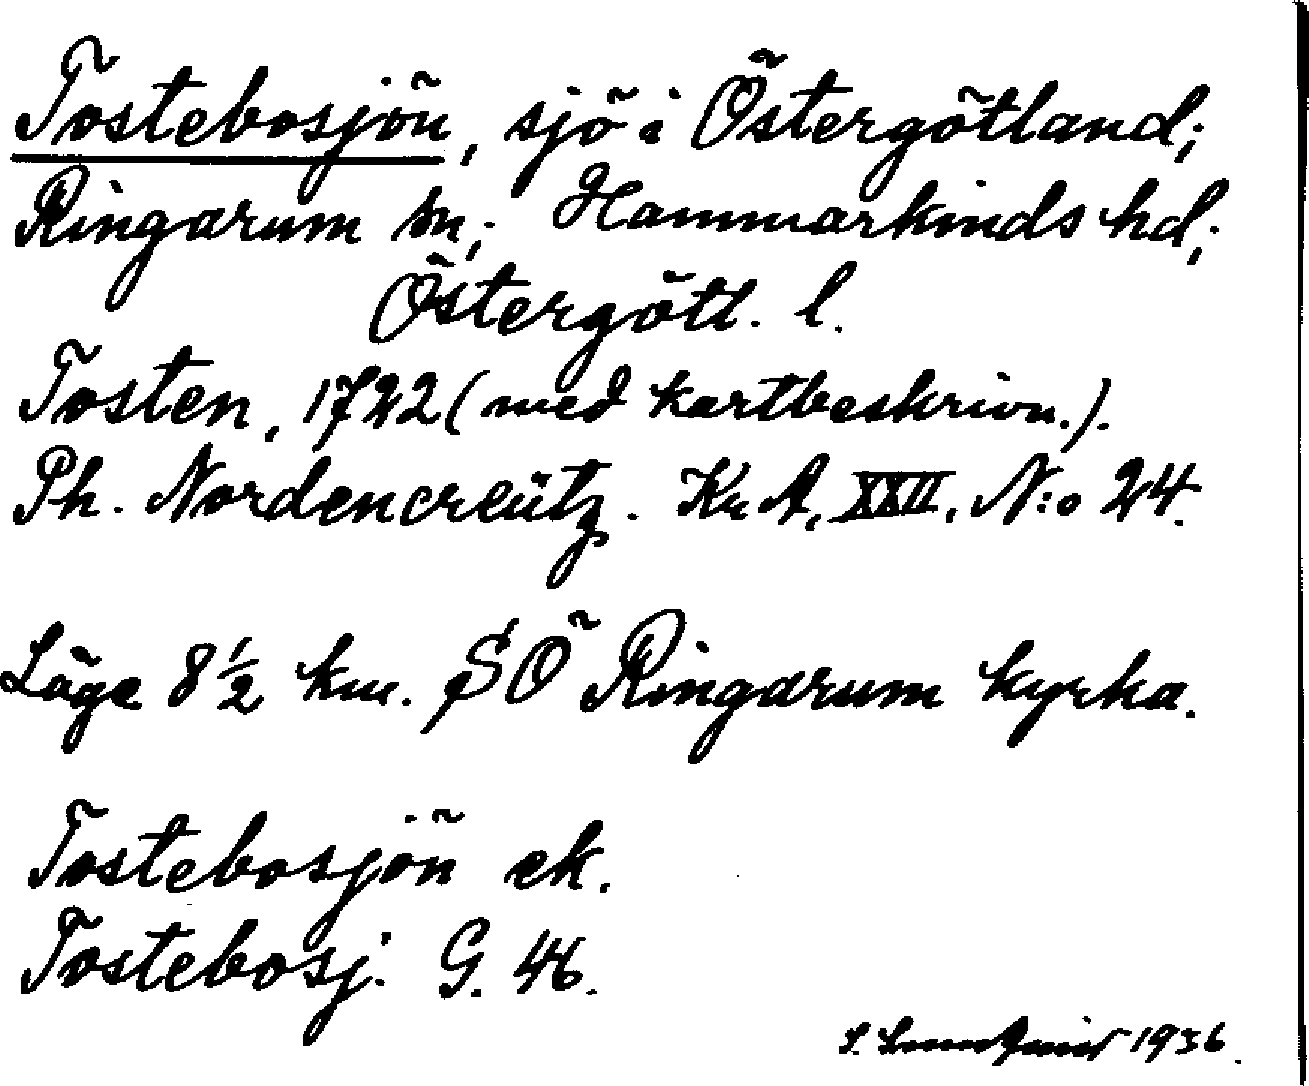 Tostebosjön, sjö i Östergötland;
Ringarum sn; Hammarkinds hd;
Östergötl. l.
Tosten, 1722 (med kartbeskrivn.).
Ph. Nordencreütz. Kr A, XXII, N:o 24.
Läge 8 1/2 km. SÖ Ringarum kyrka.
Tostebosjön ek.
Tostebosj. G. 46.
S. 1936.